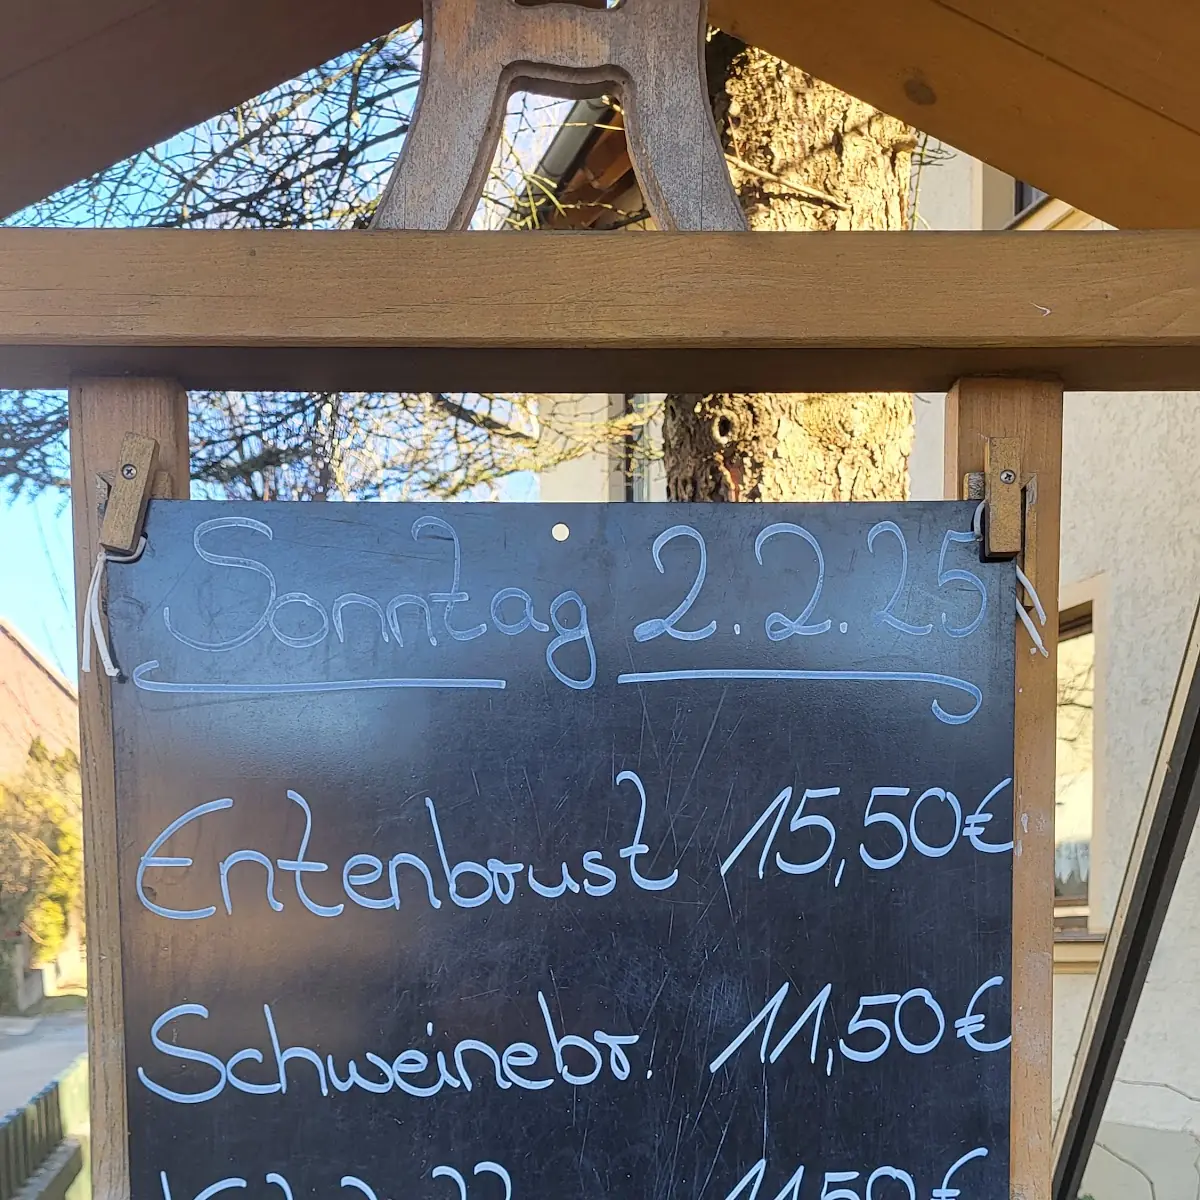 Sonntag 2.2.25
Entenbrust 15,50€
Schweinebr. 11,50€
11,50€